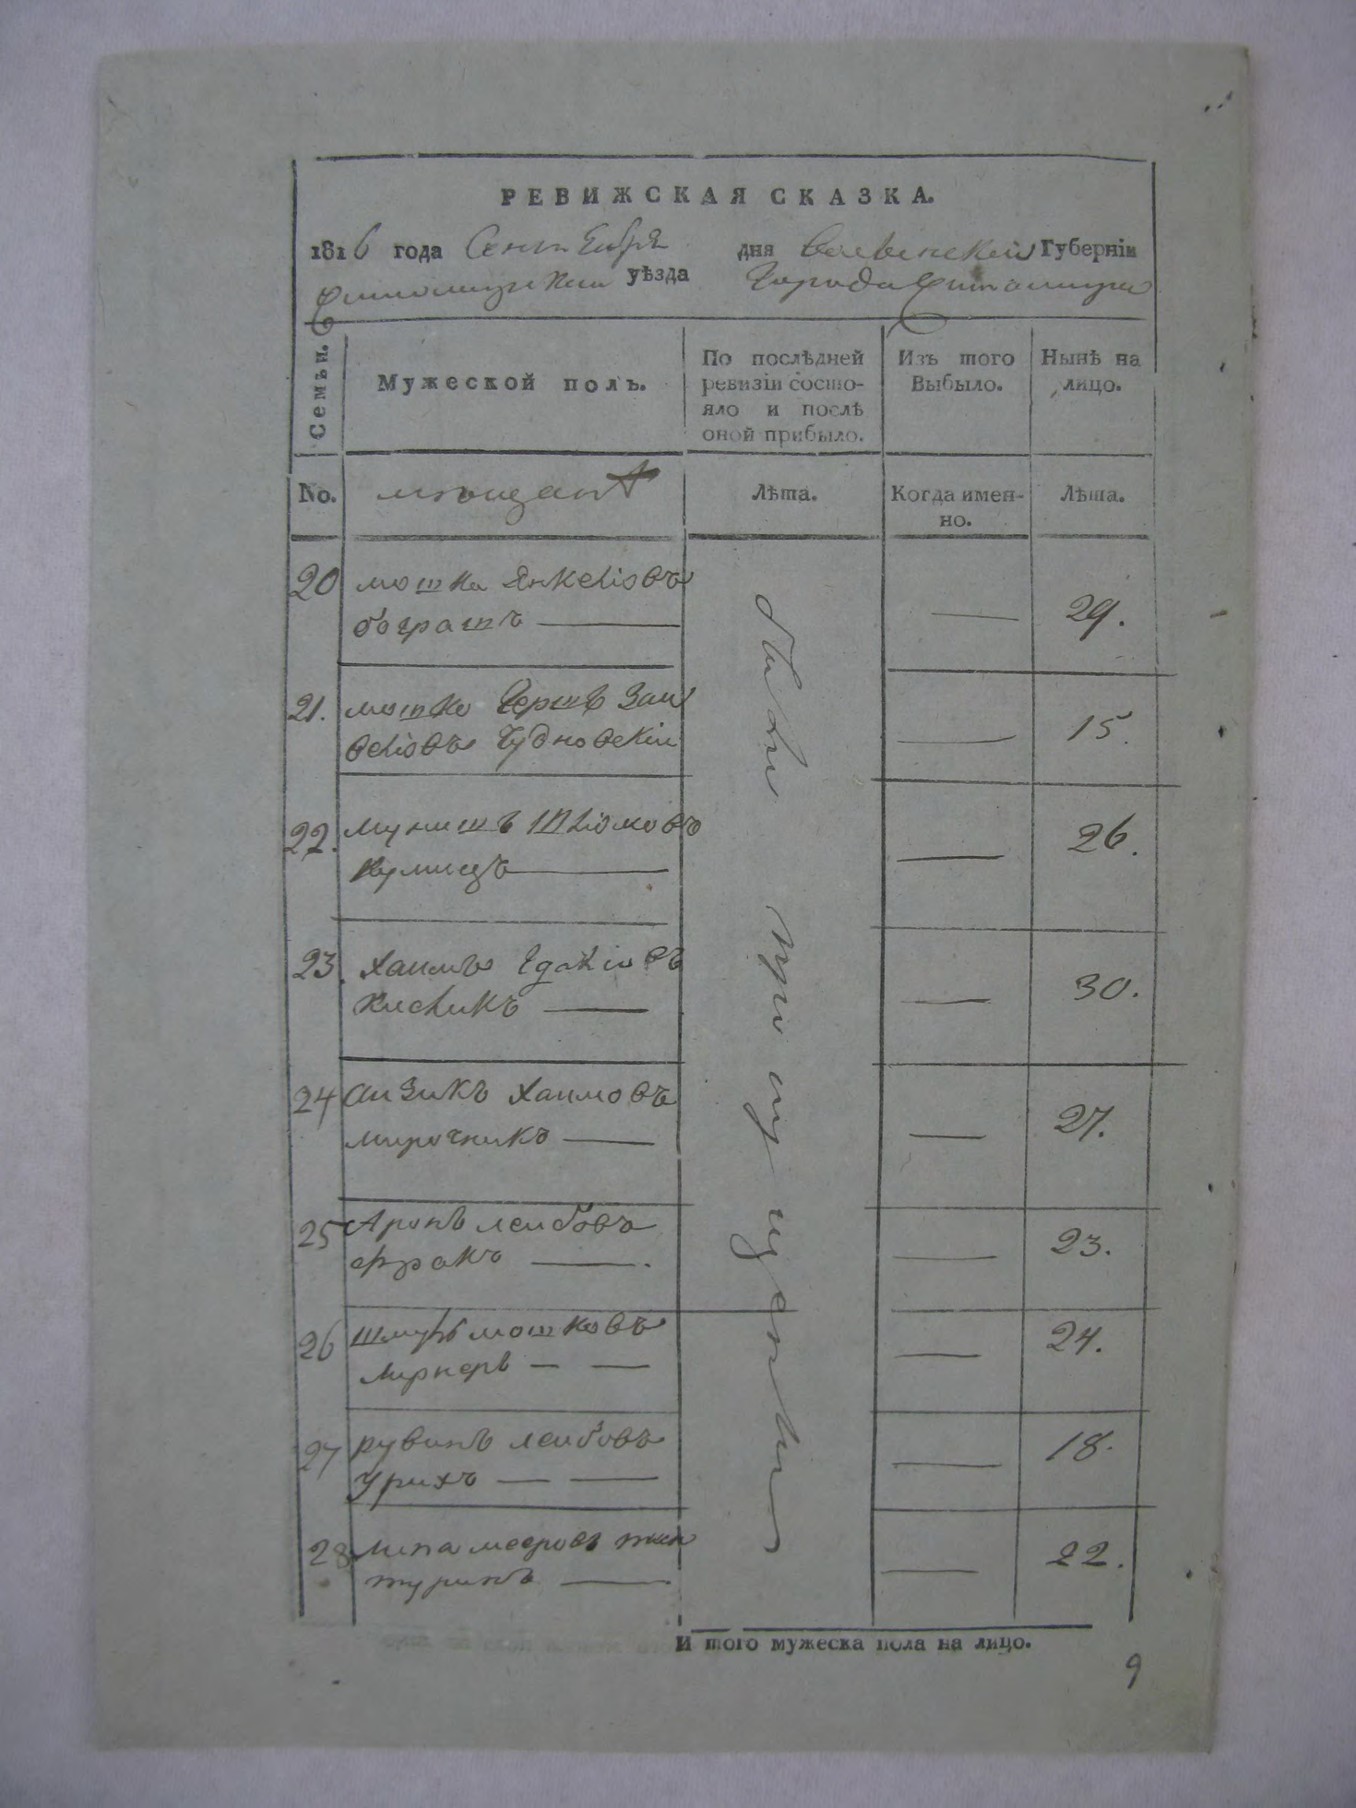 РЕВИЖСКАЯ СКАЗКА.
1816 года Сентября дня Волынской Губерніи
Житомирскаго уѣзда Города Житомира
Семьи.
Мужеской полъ.
По послѣдней
ревизіи состо-
яло и послѣ
оной прибыло.
Изъ того
Выбыло.
Нынѣ на
лицо.
No.
мѣщанъ
Лѣта.
Когда имен-
но.
Лѣта.
были пропущенны
20 мошко Янкеліовъ
бограшъ — — 29.
21. мошко Гершъ Зай
веліовъ Чудновскій — 15.
22. мунишъ Шліомовъ
— — 26.
23. хаимъ
— — 30.
24 аизикъ хаимовъ
мирочникъ — — 27.
25 Аронъ леибовъ
— — 23.
26 шмуль мошковъ
лернеръ — — — 24.
27 рувинъ леибовъ
урихъ — — — 18.
28 липа мееровъ
— — 22.
И того мужеска пола на лицо.
9